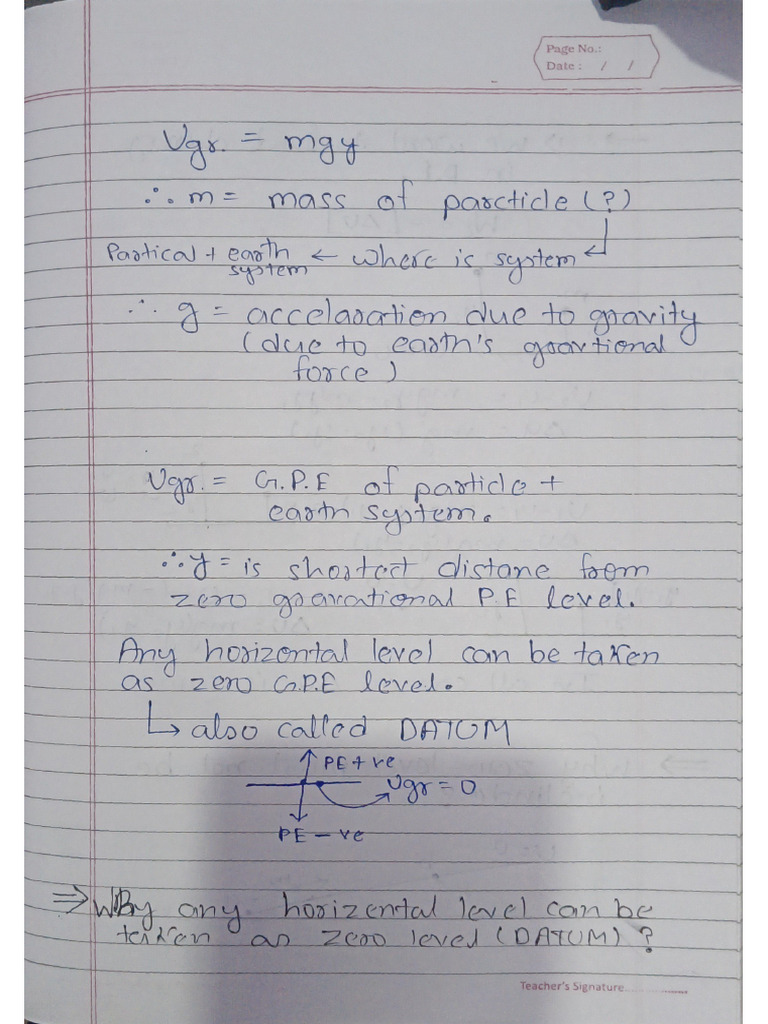 Page No.:
Date : / /
Ugr. = mgy
∴ m = mass of parcticle (?)
Partical + earth system ← where is system
∴ g = accelaration due to gravity
(due to earth's gravtional
force)
Ugr. = G.P.E of particle +
earth system.
∴ y = is shortect distane from
zero gravational P.E level.
Any horizontal level can be taken
as zero G.P.E level.
↳ also called DATUM
PE + ve
Ugr = 0
PE - ve
⇒ Why any horizental level can be
taken as zero level (DATUM) ?
Teacher's Signature